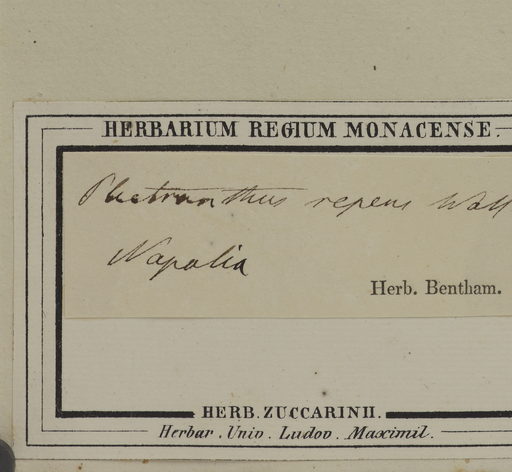 HERBARIUM REGIUM MONACENSE.
Plectranthus repens Wall
Napalia
Herb. Bentham.
HERB. ZUCCARINII.
Herbar. Univ. Ludov. Maximil.